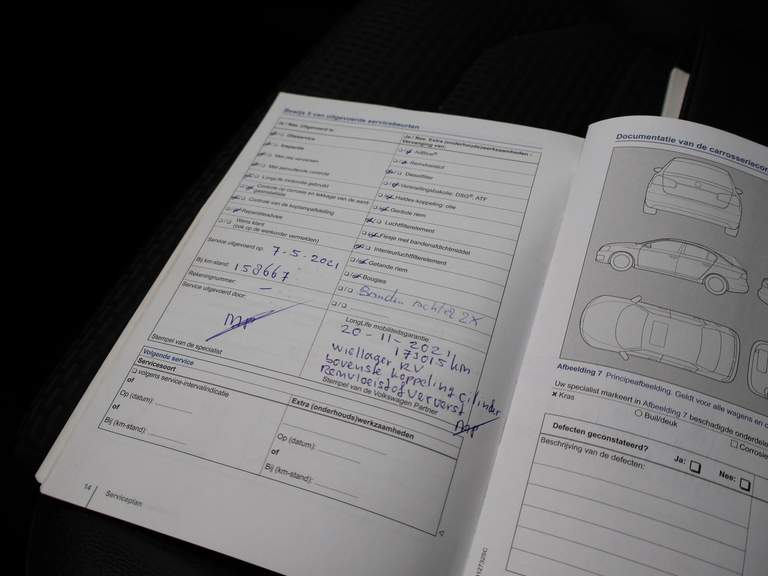 Bewijs 5 van uitgevoerde servicebeurten
Ja / Nee Uitgevoerd is:
Olieservice
Inspectie
Met olie verversen
Met aanvullende controle
LongLife motorolie gebruikt
Controle op corrosie en lekkage van de aircocondensator
Controle van de koplampafstelling
Reparatieadvies
Wens klant
(ook op de werkorder vermelden)
Service uitgevoerd op: 7-5-2021
Bij km-stand: 158667
Rekeningnummer: –
Service uitgevoerd door:
Stempel van de specialist
Ja / Nee Extra (onderhouds)werkzaamheden -
Vervanging van:
AdBlue®
Remvloeistof
Dieselfilter
Versnellingsbakolie, DSG®, ATF
Haldex-koppeling: olie
Geribde riem
Luchtfilterelement
Flesje met bandenafdichtmiddel
Interieurluchtfilterelement
Getande riem
Bougies
Banden achter 2X
LongLife mobiliteitsgarantie:
20-11-2021
173015 km
wiellager RV
bovenste koppeling cilinder
Remvloeistof ververst
Stempel van de Volkswagen Partner
Volgende service
Servicesoort
volgens service-intervalindicatie
of
Op (datum):
of
Bij (km-stand):
Extra (onderhouds)werkzaamheden
Op (datum):
of
Bij (km-stand):
14 Serviceplan
Documentatie van de carrosseriecon
Afbeelding 7 Principeafbeelding. Geldt voor alle wagens en c
Uw specialist markeert in Afbeelding 7 beschadigde onderdele
× Kras
Buil/deuk
Corrosie
Defecten geconstateerd?
Ja:
Nee:
Beschrijving van de defecten: